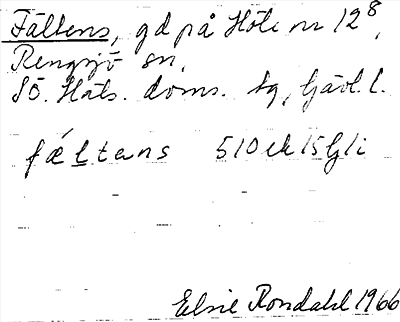 Fältens, gd på Höle nr 12⁸,
Rengsjö sn,
Sö. Häls. doms. tg, Gävl. l.
fǽltens 510ek15Gli
Elsie Rondahl 1966